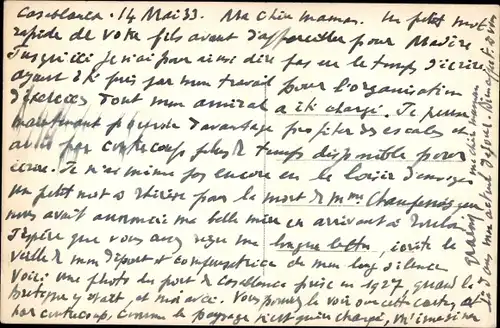 Casablanca. 14 Mai 33. Ma chère maman. Un petit mot
rapide de votre fils avant d'appareiller pour Madère
Jusqu'ici je n'ai pour ainsi dire pas eu le temps d'écrire
ayant été pris par mon travail pour l'organisation
d'exercices dont mon amiral a été chargé. Je pense
maintenant pouvoir davantage profiter des escales et
avoir par contrecoup plus de temps disponible pour
écrire. Je n'ai même pas encore eu le loisir d'envoyer
un petit mot à Thérèse pour la mort de Mme que
nous avait annoncée ma belle mère en arrivant à Toulon.
J'espère que vous avez reçu ma longue lettre, écrite la
veille de mon départ et compensatrice de mon long silence
Voici une photo du port de Casablanca prise en 1927, quand le
Bretagne y était, et moi avec. Vous pouvez le voir
par contrecoup, comme le paysage s'est changé,
ma chère maman